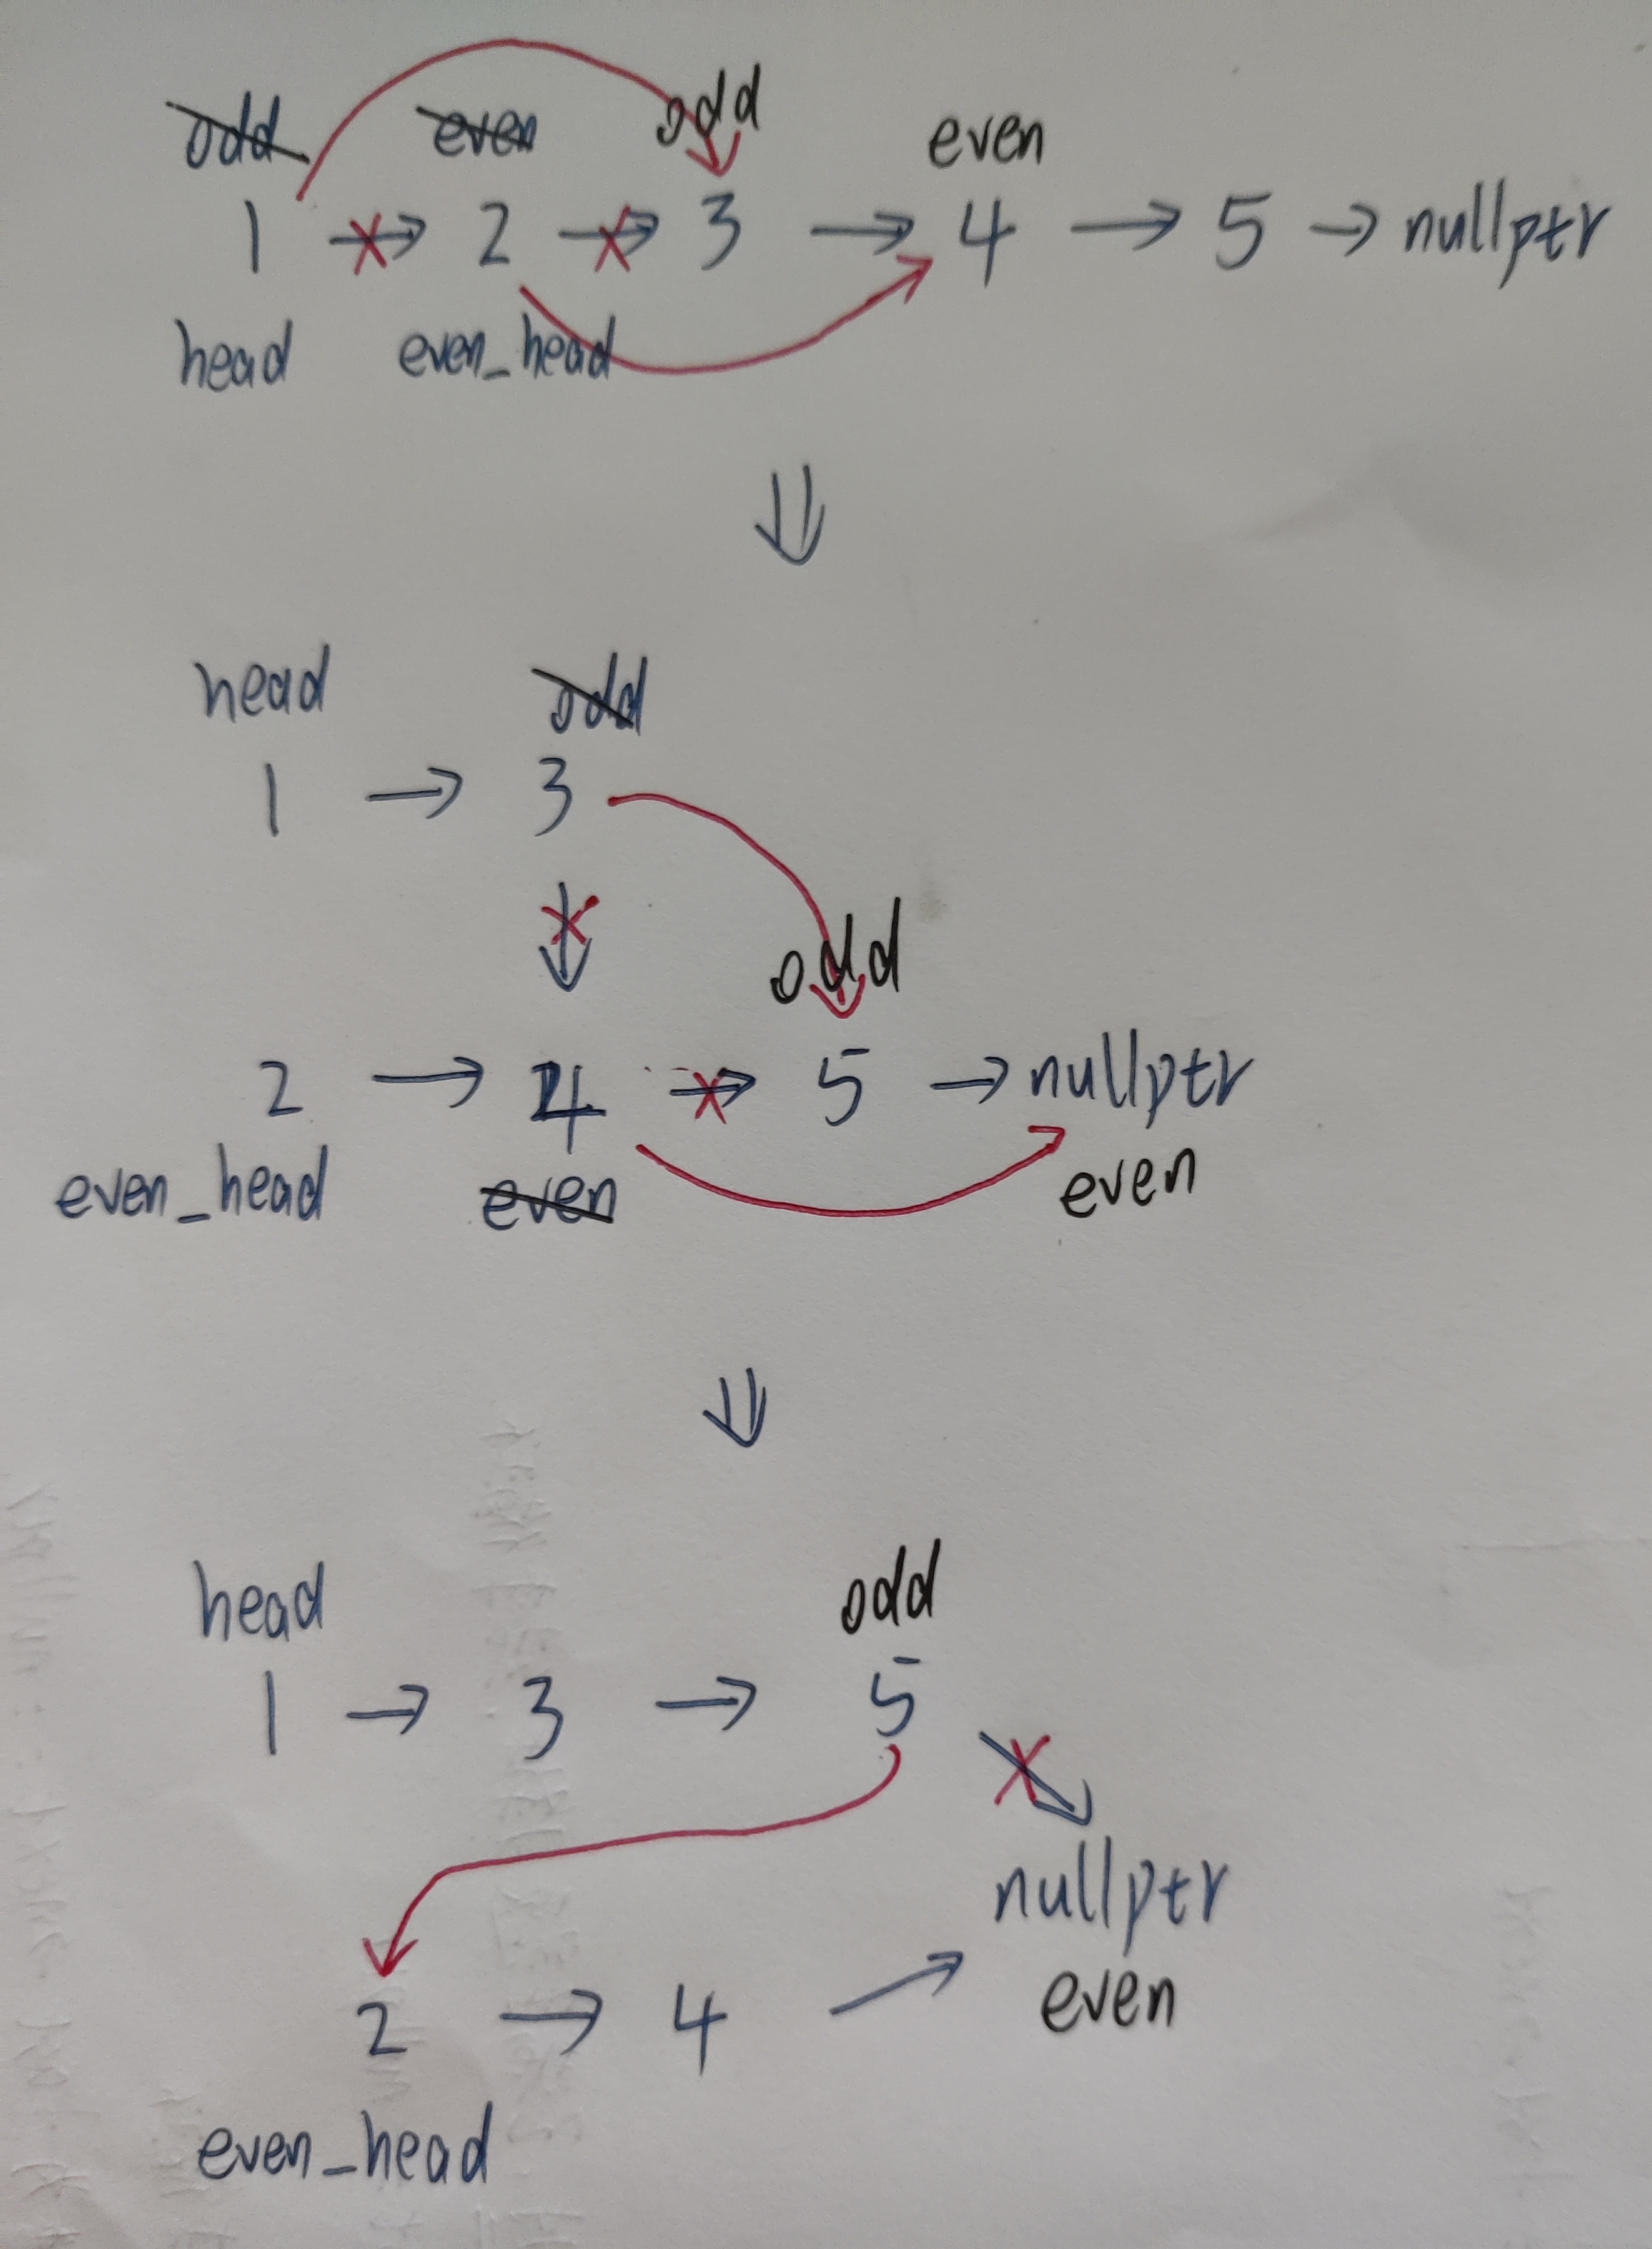 odd even odd even
1 → 2 → 3 → 4 → 5 → nullptr
head even_head
⇓
head odd
1 → 3
↓
odd
2 → 4 → 5 → nullptr
even_head even even
⇓
head odd
1 → 3 → 5
nullptr
2 → 4 → even
even_head